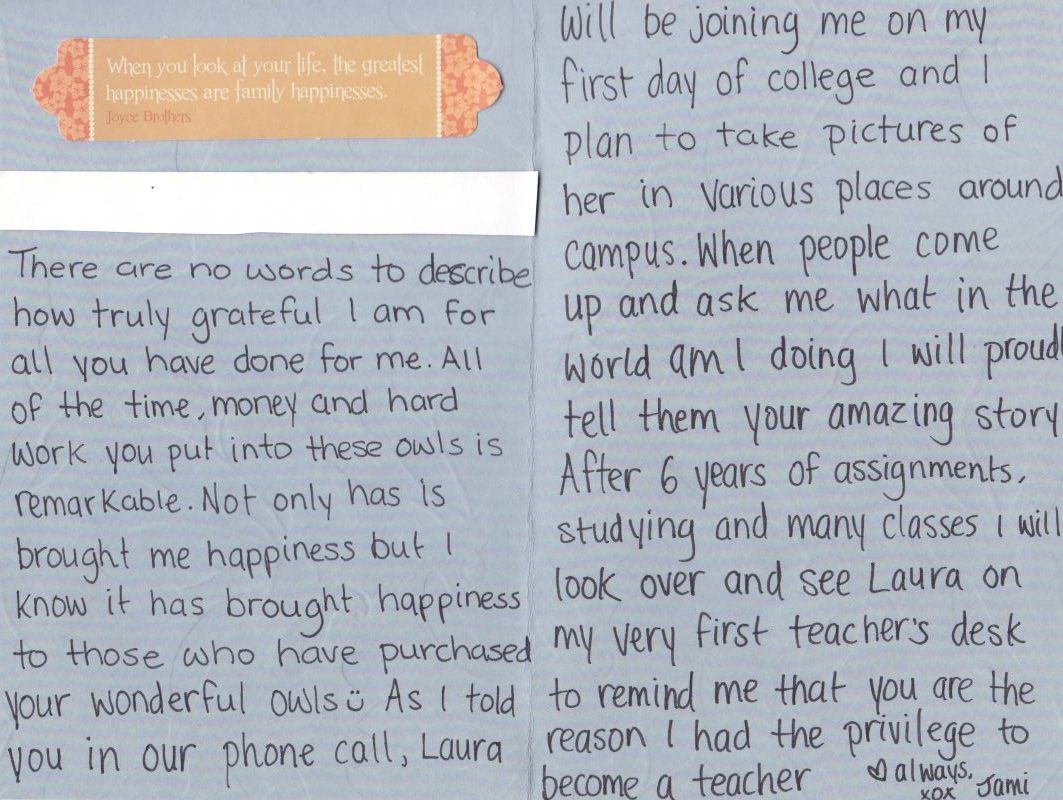 When you look at your life, the greatest
happinesses are family happinesses.
Joyce Brothers
There are no words to describe
how truly grateful I am for
all you have done for me. All
of the time, money and hard
work you put into these owls is
remarkable. Not only has is
brought me happiness but I
know it has brought happiness
to those who have purchased
your wonderful owls ü As I told
you in our phone call, Laura
Will be joining me on my
first day of college and I
plan to take pictures of
her in various places around
campus. When people come
up and ask me what in the
world am I doing I will proudl
tell them your amazing story
After 6 years of assignments,
studying and many classes I will
look over and see Laura on
my very first teacher's desk
to remind me that you are the
reason I had the privilege to
become a teacher
♡ always,
xox Jami